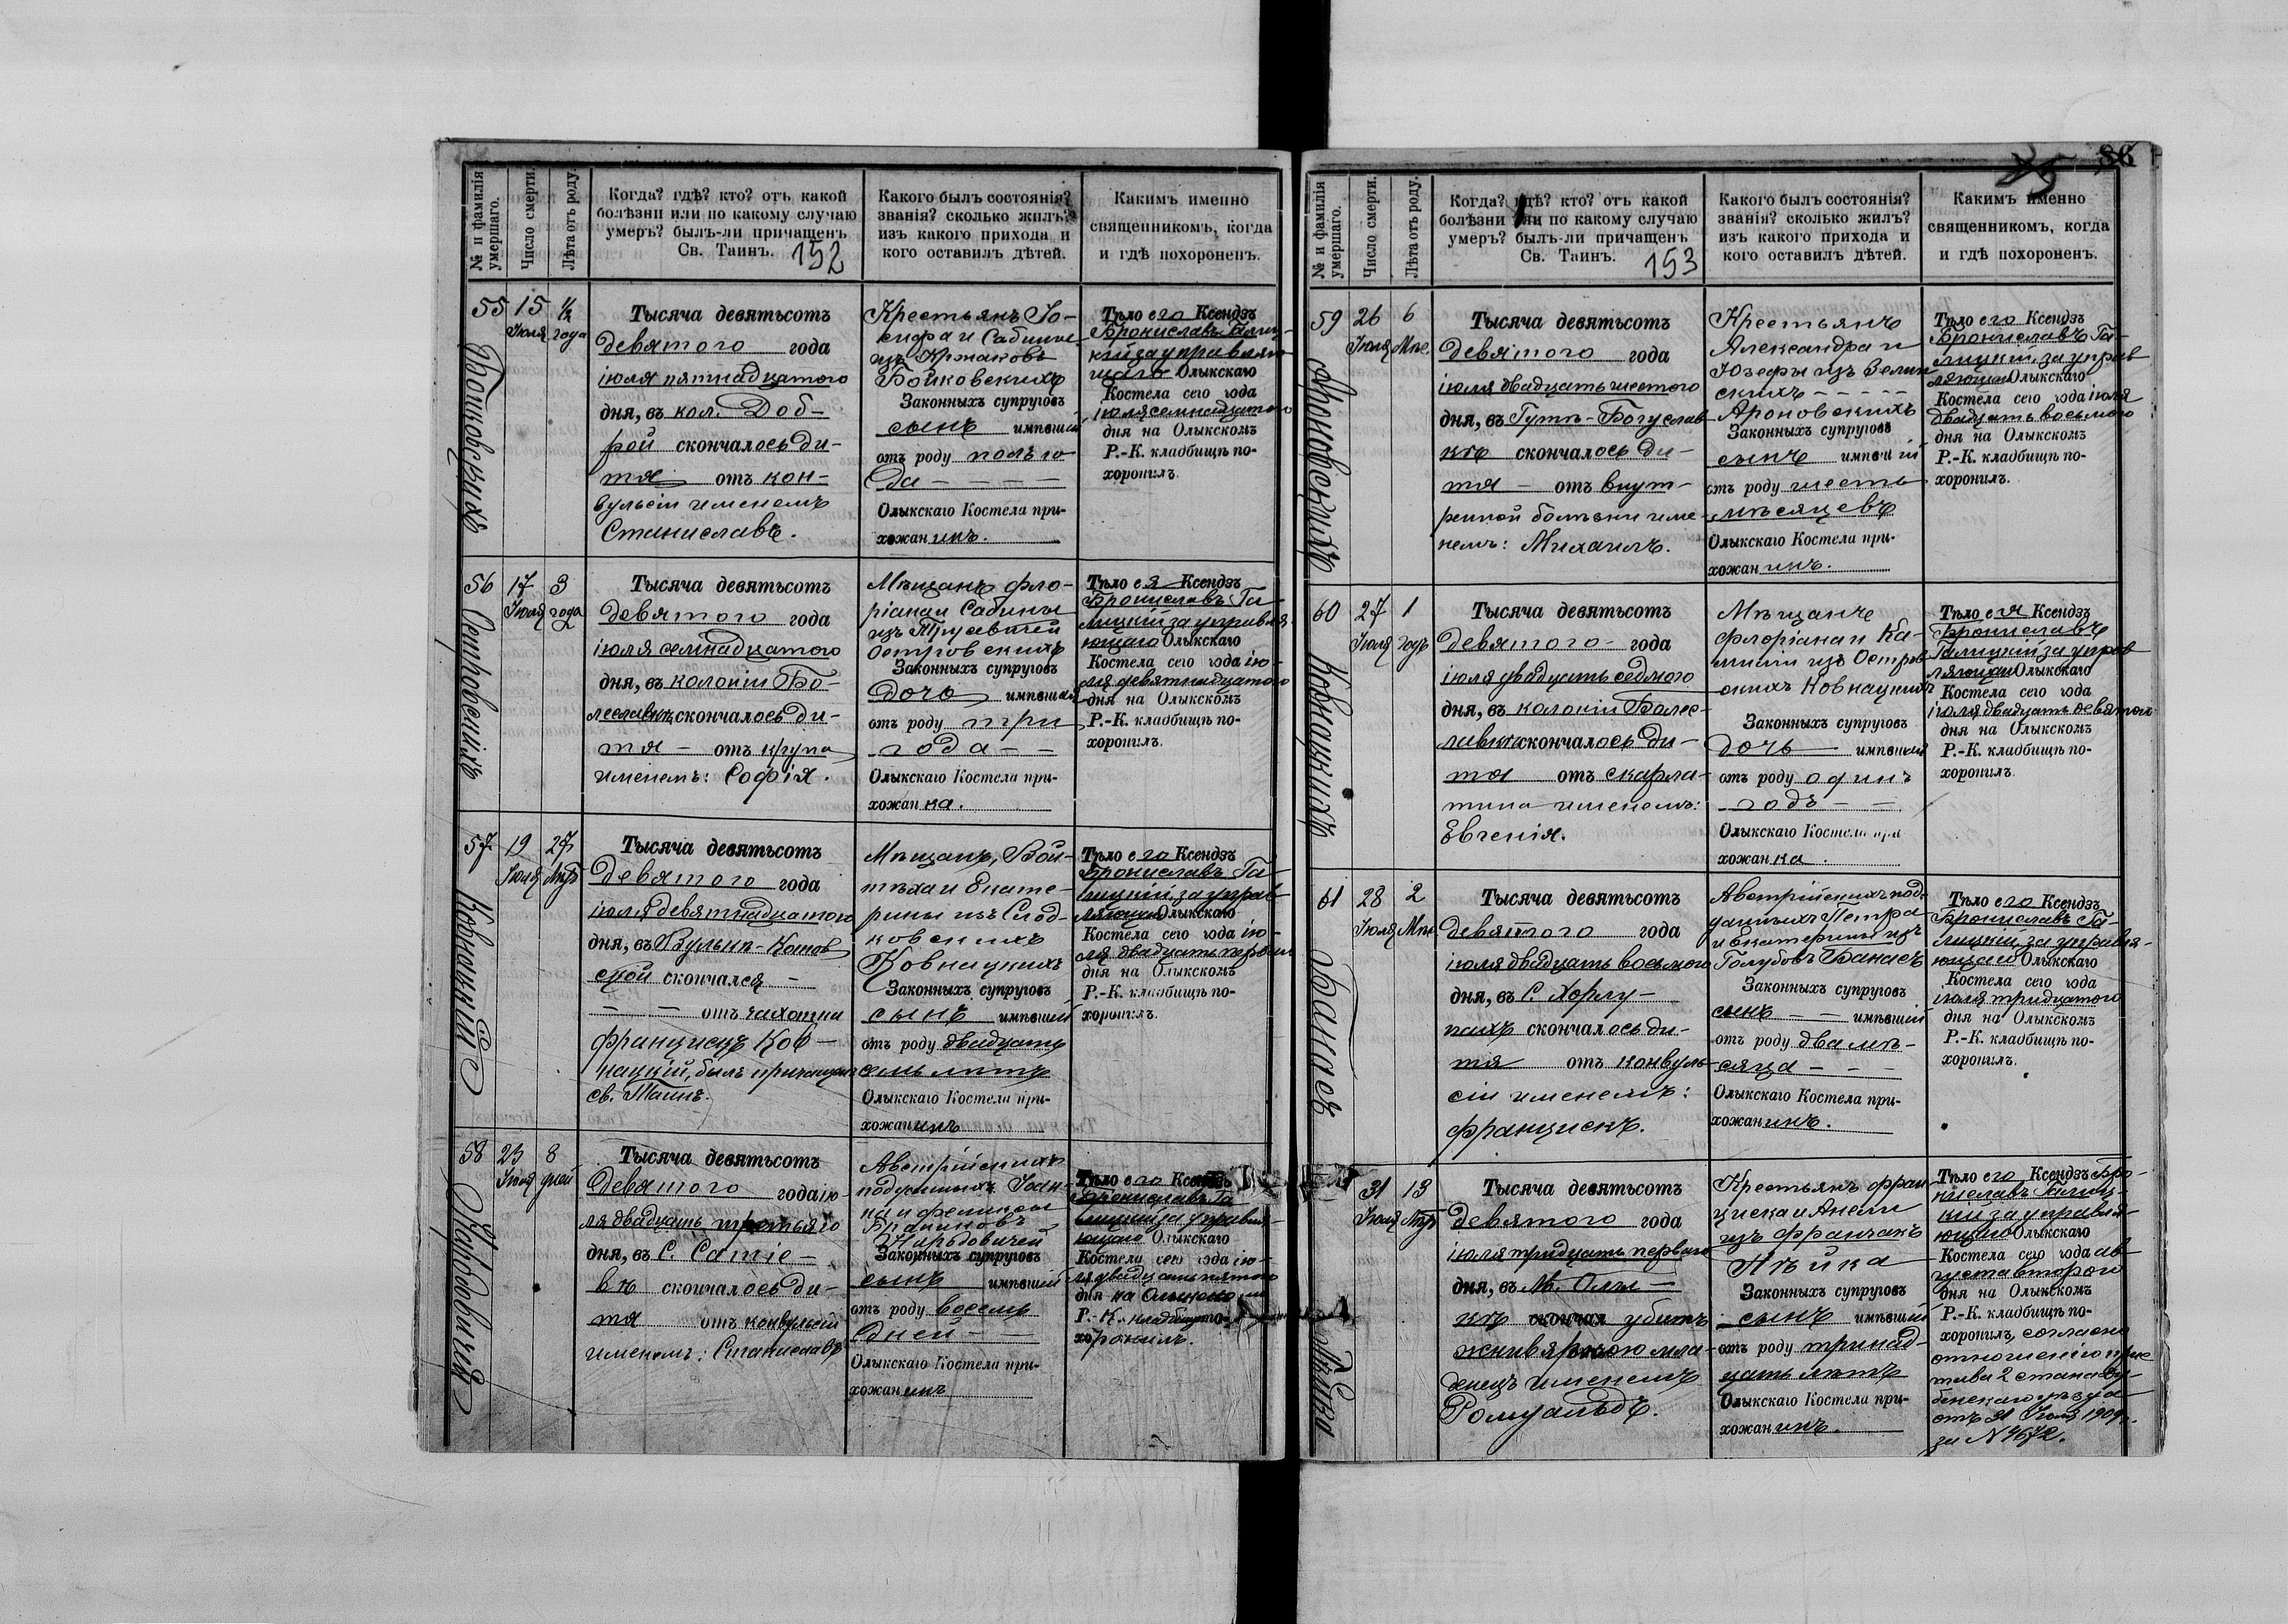 № и фамилія умершаго.
Число смерти.
Лѣта отъ роду.
Когда? гдѣ? кто? отъ какой
болѣзни или по какому случаю
умеръ? былъ-ли причащенъ
Св. Таинъ. 152
Какого былъ состоянія?
званія? сколько жилъ?
изъ какого прихода и
кого оставилъ дѣтей.
Какимъ именно
священникомъ, когда
и гдѣ похороненъ.
55
15
Іюля
½
года
Тысяча девятьсотъ
девятого года
іюля пятнадцатого
дня, въ кол. Доб-
рой скончалось ди-
тя отъ кон-
вульсіи именемъ
Станиславъ.
Крестьянъ Іо-
сифа и Сабины
изъ
Бойковскихъ
Законныхъ супруговъ
сынъ имѣвшій
отъ роду полъ го-
да - - - -
Олыкскаго Костела при-
хожанинъ.
Тѣло его Ксендзъ
Брониславъ Галиц-
кій за управляю-
щаго Олыкскаго
Костела сего года
іюля семнадцатого
дня на Олыкскомъ
Р.-К. кладбищѣ по-
хоронилъ.
56
17
Іюля
3
года
Островскихъ
Тысяча девятьсотъ
девятого года
іюля семнадцатого
дня, въ колоніи Бо-
леславкѣ скончалось ди-
тя - отъ крупа
именемъ: Софія.
Мѣщанъ Фло-
ріана и Сабины
изъ
Островскихъ
Законныхъ супруговъ
дочь имѣвшая
отъ роду три
года - -
Олыкскаго Костела при-
хожанка.
Тѣло ея Ксендзъ
Брониславъ Га-
лицкій за управля-
ющаго Олыкскаго
Костела сего года ію-
ля девятнадцатого
дня на Олыкскомъ
Р.-К. кладбищѣ по-
хоронилъ.
57
19
Іюля
27
лѣтъ
Ковнацкій
Тысяча девятьсотъ
девятого года
іюля девятнадцатого
дня, въ Вулькѣ-Котов
ской скончался -
- - отъ чахотки
Францискъ Ков-
нацкій, былъ причащенъ
св. Таинъ.
Мѣщанъ, Вой-
тѣха и Екате-
рины изъ Слод-
ковскихъ
Ковнацкихъ
Законныхъ супруговъ
сынъ имѣвшій
отъ роду двадцать
семь лѣтъ
Олыкскаго Костела при-
хожанинъ
Тѣло его Ксендзъ
Брониславъ Га-
лицкій за управ
ляющаго Олыкскаго
Костела сего года ію-
ля двадцать перваго
дня на Олыкскомъ
Р.-К. кладбищѣ по-
хоронилъ.
58
23
Іюля
8
дней
Тысяча девятьсотъ
девятого года ію-
ля двадцать третьяго
дня, въ С. Сатіе-
вѣ скончалось ди-
тя отъ конвульсіи
именемъ: Станиславъ
Австрійскихъ
подданныхъ Іоан-
на и Феликсы
Законныхъ супруговъ
сынъ имѣвшій
отъ роду восемь
дней - -
Олыкскаго Костела при-
хожанинъ
Тѣло его Ксендзъ
Брониславъ Га
лицкій за управля-
ющаго Олыкскаго
Костела сего года ію-
ля двадцать пятого
дня на Олыкскомъ
Р.-К. кладбищѣ по-
хоронилъ.
86
25
№ и фамилія умершаго.
Число смерти.
Лѣта отъ роду.
Когда? гдѣ? кто? отъ какой
болѣзни или по какому случаю
умеръ? былъ-ли причащенъ
Св. Таинъ. 153
Какого былъ состоянія?
званія? сколько жилъ?
изъ какого прихода и
кого оставилъ дѣтей.
Какимъ именно
священникомъ, когда
и гдѣ похороненъ.
59
26
Іюля
6
Мѣс.
Ароновскихъ
Тысяча девятьсотъ
девятого года
іюля двадцать шестого
дня, въ Гутѣ-Богуслав
кѣ скончалось ди-
тя - отъ внут-
ренной болѣзни име-
немъ: Михаилъ.
Крестьянъ
Александра и
Юзефы изъ Зелин
скихъ - - - -
Ароновскихъ
Законныхъ супруговъ
сынъ имѣвшій
отъ роду шесть
мѣсяцевъ
Олыкскаго Костела при-
хожанинъ.
Тѣло его Ксендзъ
Брониславъ Га-
лицкій за управ
ляющаго Олыкскаго
Костела сего года іюля
двадцать восьмого
дня на Олыкскомъ
Р.-К. кладбищѣ по-
хоронилъ.
60
27
Іюля
1
годъ
Ковнацкихъ
Тысяча девятьсотъ
девятого - года
іюля двадцать седмого
дня, въ колоніи Болес-
лавкѣ скончалось ди-
тя отъ скарла-
тина именемъ:
Евгенія.
Мѣщанъ
Флоріана и Ка-
миліи изъ Остров
скихъ Ковнацкихъ
Законныхъ супруговъ
дочь имѣвшая
отъ роду одинъ
годъ - -
Олыкскаго Костела при
хожанка.
Тѣло ея Ксендзъ
Брониславъ
Галицкій за управ
ляющаго Олыкскаго
Костела сего года
іюля двадцать девятого
дня на Олыкскомъ
Р.-К. кладбищѣ по-
хоронилъ.
61
28
Іюля
2
Мѣс.
Банасъ
Тысяча девятьсотъ
девятого года
іюля двадцать восьмого
дня, въ С. Хорлу-
пахъ скончалось ди-
тя отъ конвуль-
сіи именемъ:
Францискъ.
Австрійскихъ под-
данныхъ Петра
и Екатерины изъ
Голубовъ Банасъ
Законныхъ супруговъ
сынъ - - имѣвшій
отъ роду два мѣ-
сяца - - -
Олыкскаго Костела при-
хожанинъ.
Тѣло его Ксендзъ
Брониславъ Га-
лицкій за управля-
ющаго Олыкскаго
Костела сего года
іюля тридцатого
дня на Олыкскомъ
Р.-К. кладбищѣ по-
хоронилъ.
31
Іюля
13
лѣтъ
Тысяча девятьсотъ
девятого года
іюля тридцать перваго
дня, въ М. Олы-
кѣ скончал убитъ
мла-
денецъ именемъ
Ромуальдъ.
Крестьянъ Фран
циска и Анели
изъ
Законныхъ супруговъ
сынъ имѣвшій
отъ роду тринад-
цать лѣтъ
Олыкскаго Костела при-
хожанинъ.
Тѣло его Ксендзъ Бро-
ниславъ Галиц-
кій за управля-
ющаго Олыкскаго
Костела сего года ав-
густа второго
дня на Олыкскомъ
Р.-К. кладбищѣ по-
хоронилъ, согласно
отношенію прис
тава 2 стана Ду-
бенскаго уѣзда
отъ 31 Іюля 1909 г.
за N 4672.